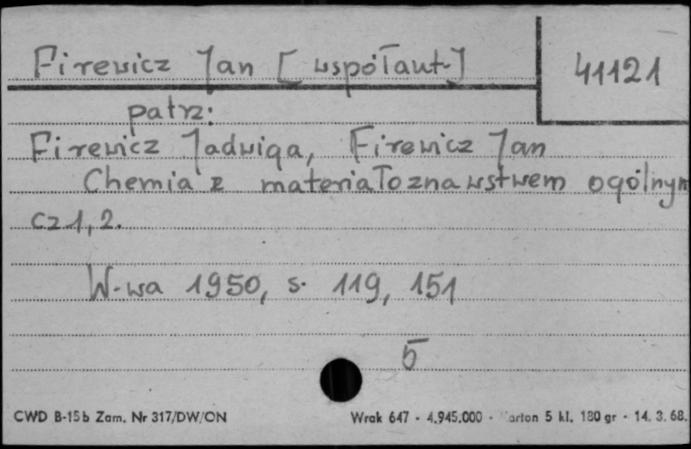 Firewicz Jan [współaut.]
41121
patrz:
Firewicz Jadwiga, Firewicz Jan
Chemia z materiałoznawstwem ogólnym
cz 1, 2.
W-wa 1950, s. 119, 151
5
CWD B-15b Zam. Nr 317/DW/ON
Wrak 647 - 4.945.000 - arton 5 kl. 180 gr - 14. 3. 68.